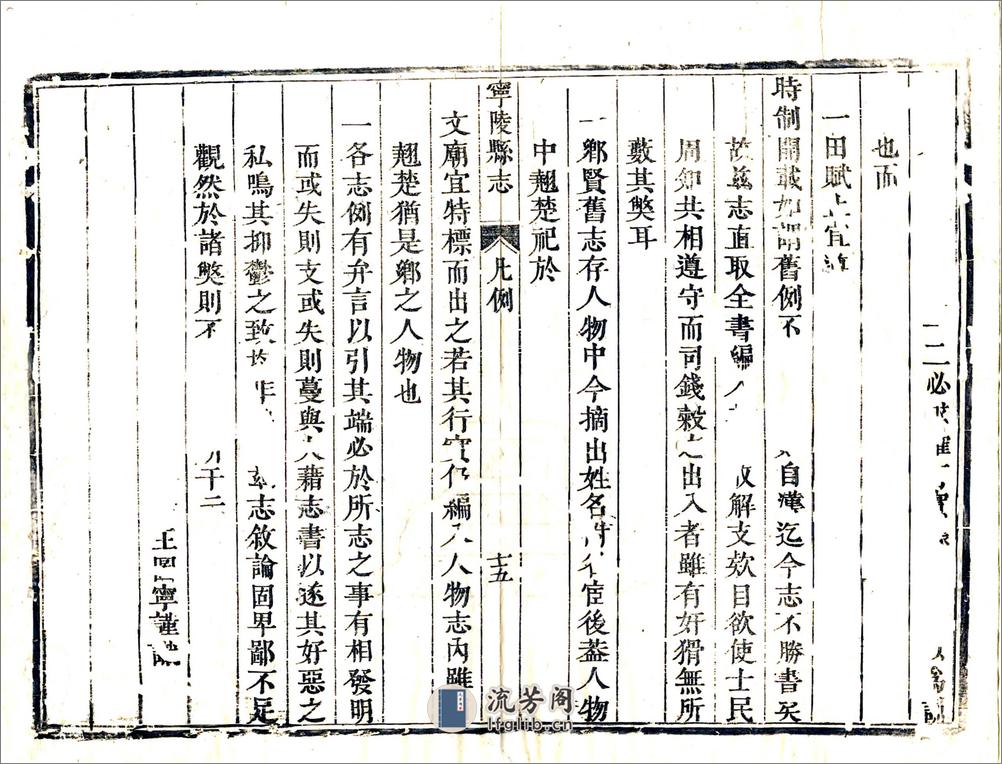 二必
也而
一田賦宜
時制開載如謂舊例不 自漢迄今志不勝書矣
故茲志直取全書編 解支欬目欲使士民
周知共相遵守而司錢穀之出入者雖有奸猾無所
藪其獘耳
一鄉賢舊志存人物中今摘出姓名 宦後葢人物
中翹楚祀於
寧陵縣志 凡例 十五
文廟宜特標而出之若其行實仍編入人物志內雖
翹楚猶是鄉之人物也
一各志例有弁言以引其端必於所志之事有相發明
而或失則支或失則蔓與夫藉志書以遂其好惡之
私鳴其抑鬱之致 志敘論固卑鄙不足
觀然於諸獘則不 于二
王 寧謹
流芳阁
lfglib.cn